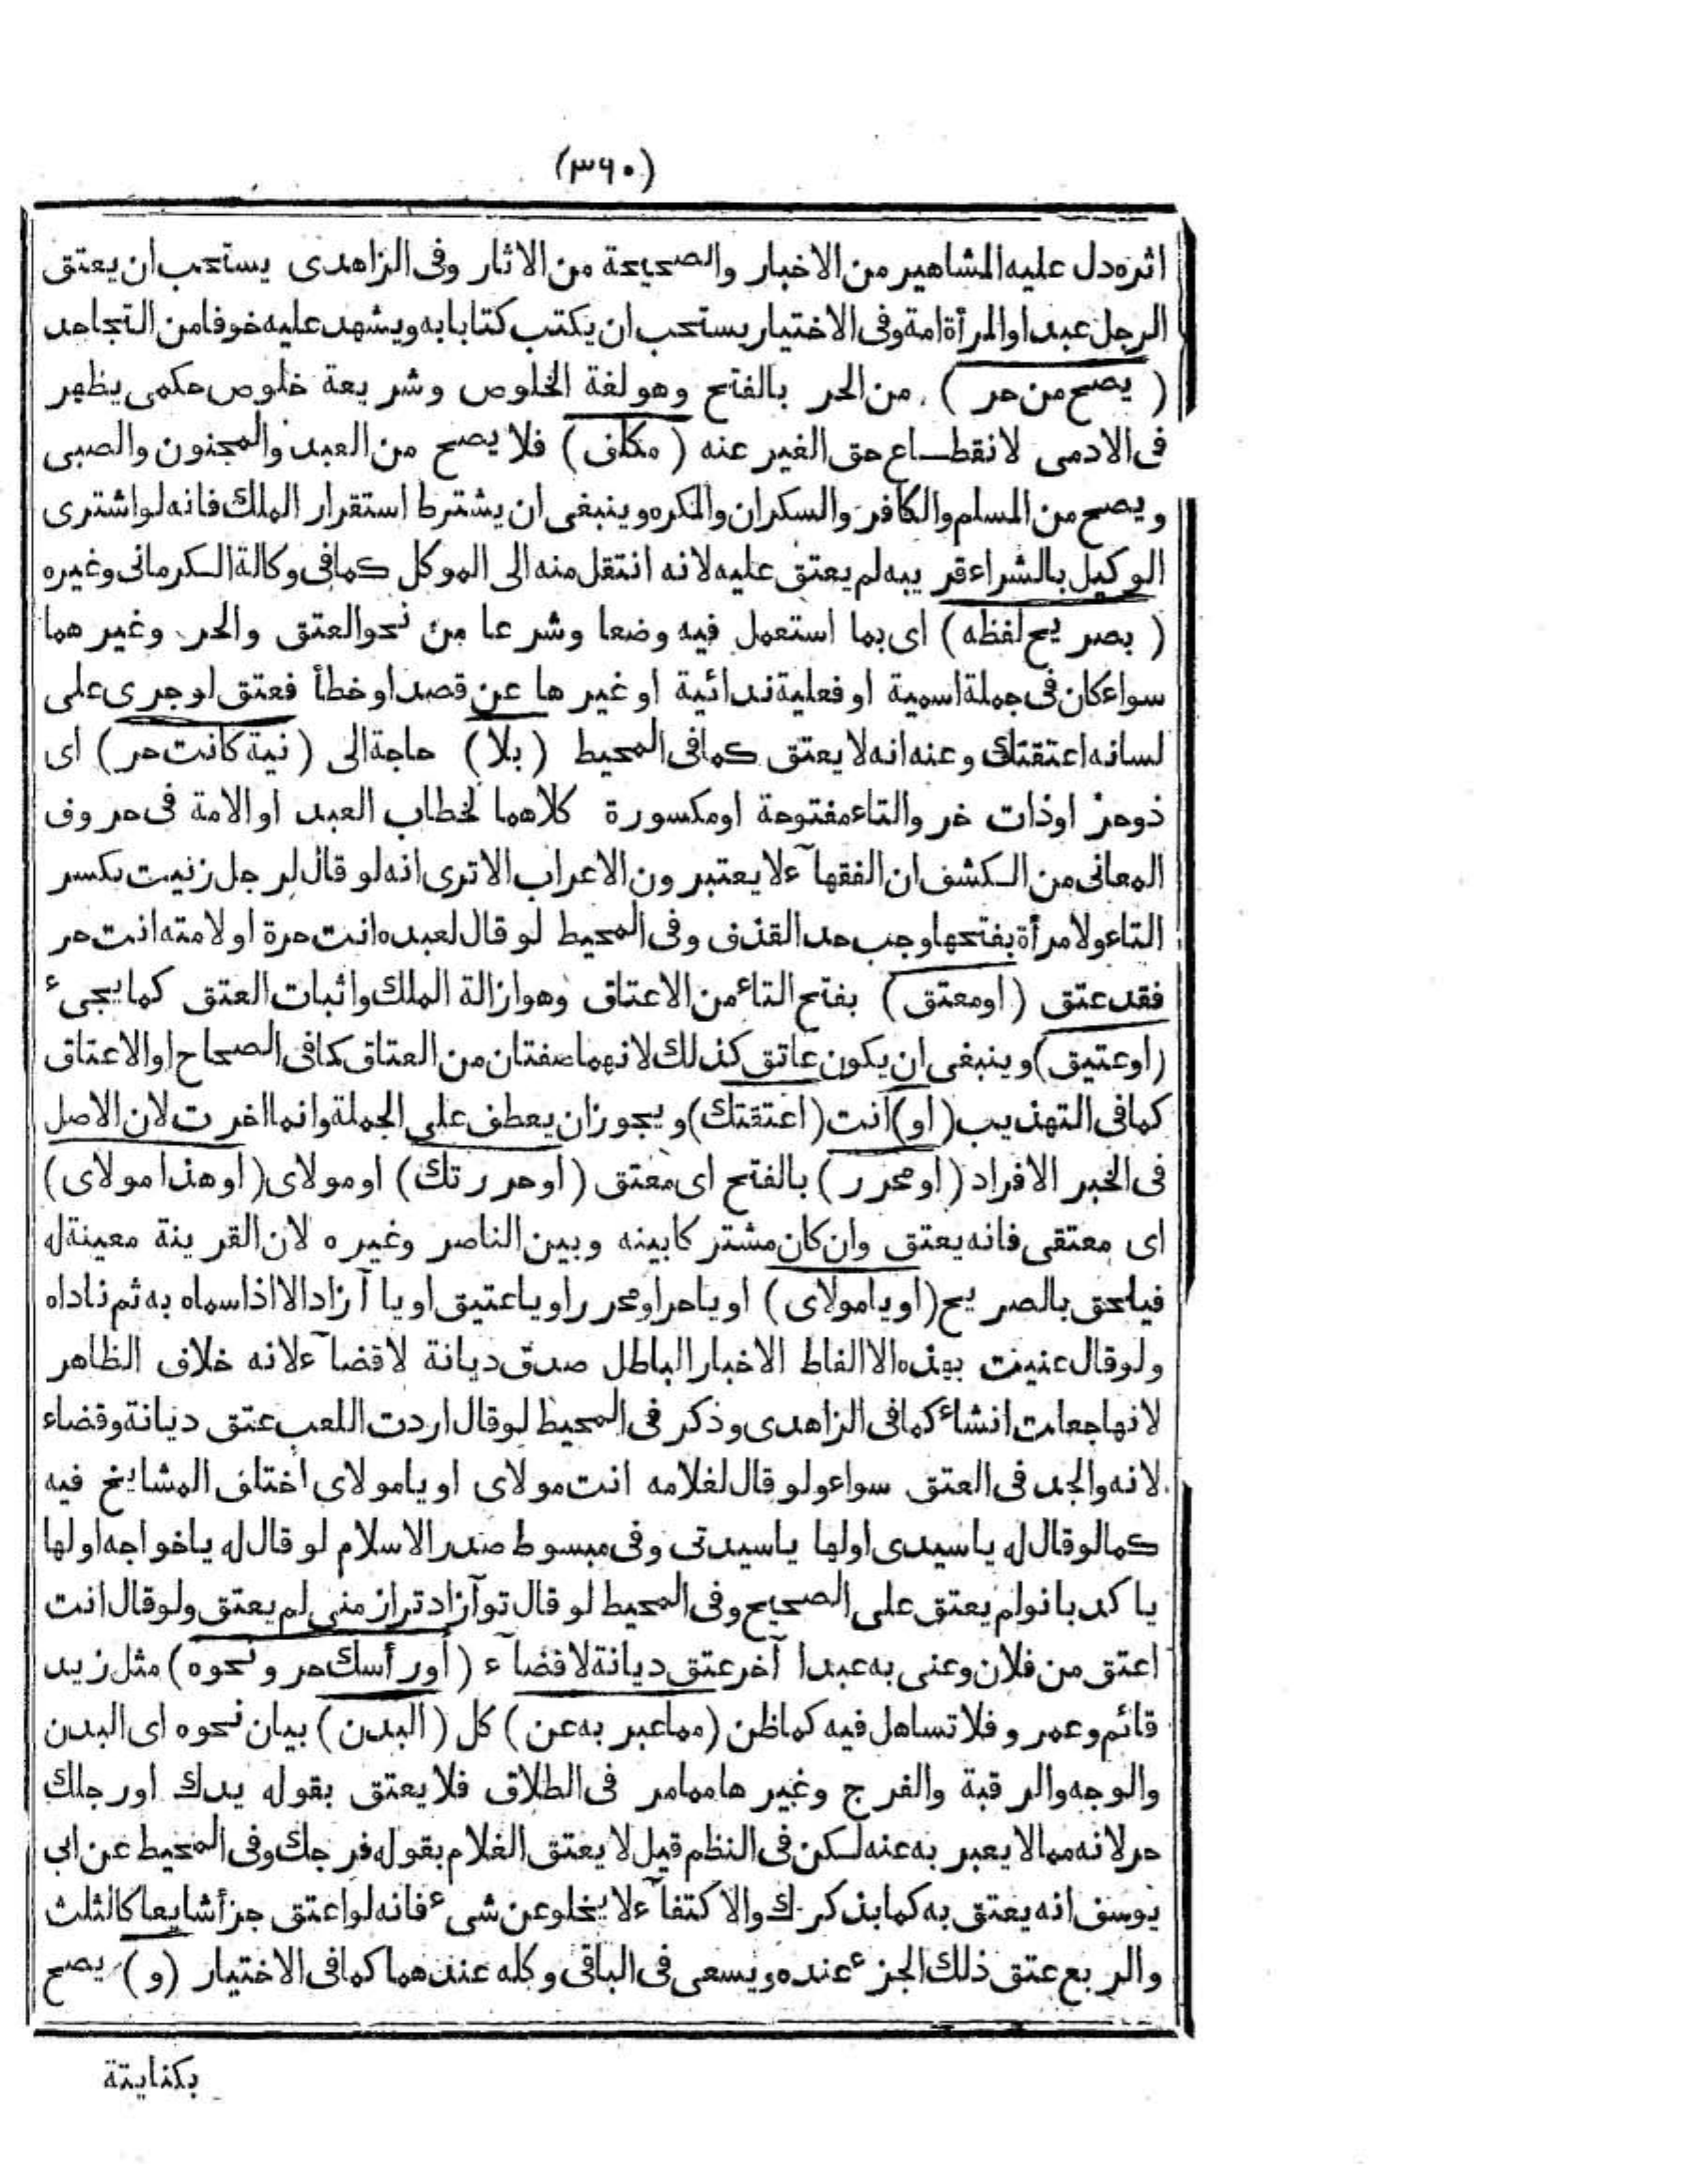 (٣٦٠)
اثره دل عليه المشاهير من الاخبار والصحيحة من الاثار وفى الزاهدى يستحب ان يعتق
الرجل عبدا والمرأة امة وفى الاختيار يستحب ان يكتب كتابا به ويشهد عليه خوفا من التجاحد
( يصح من حر ) من الحر بالفتح وهو لغة الخلوص وشريعة خلوص حكمى يظهر
فى الادمى لانقطاع حق الغير عنه ( مكلف ) فلا يصح من العبد والمجنون والصبى
ويصح من المسلم والكافر والسكران والمكره وينبغى ان يشترط استقرار الملك فانه لو اشترى
الوكيل بالشراء قريبه لم يعتق عليه لانه انتقل منه الى الموكل كما فى وكالة الكرمانى وغيره
( بصريح لفظه ) اى بما استعمل فيه وضعا وشرعا من نحو العتق والحر وغيرهما
سواء كان فى جملة اسمية او فعلية ندائية او غيرها عن قصد او خطأ فعتق لو جرى على
لسانه اعتقتك وعنه انه لا يعتق كما فى المحيط ( بلا ) حاجة الى ( نية كانت حر ) اى
ذو حر او ذات حر والتاء مفتوحة او مكسورة كلاهما لخطاب العبد او الامة فى حروف
المعانى من الكشف ان الفقهاء لا يعتبرون الاعراب الا ترى انه لو قال لرجل زنيت بكسر
التاء ولامرأة بفتحها وجب حد القذف وفى المحيط لو قال لعبده انت حرة او لامته انت حر
فقد عتق ( او معتق ) بفتح التاء من الاعتاق وهو ازالة الملك واثبات العتق كما يجىء
( او عتيق ) وينبغى ان يكون عاتق كذلك لانهما صفتان من العتاق كما فى الصحاح او الاعتاق
كما فى التهذيب ( او ) انت ( اعتقتك ) ويجوز ان يعطف على الجملة وانما اخرت لان الاصل
فى الخبر الافراد ( او محرر ) بالفتح اى معتق ( او حررتك ) او مولاى ( او هذا مولاى )
اى معتقى فانه يعتق وان كان مشتركا بينه وبين الناصر وغيره لان القرينة معينة له
فيلحق بالصريح ( او يا مولاى ) او يا حر او محرر او يا عتيق او يا آزاد الا اذا سماه به ثم ناداه
ولو قال عنيت بهذه الالفاظ الاخبار الباطل صدق ديانة لا قضاء لانه خلاف الظاهر
لانها جعلت انشاء كما فى الزاهدى وذكر فى المحيط لو قال اردت اللعب عتق ديانة وقضاء
لانه والجد فى العتق سواء ولو قال لغلامه انت مولاى او يا مولاى اختلف المشايخ فيه
كما لو قال له يا سيدى او لها يا سيدتى وفى مبسوط صدر الاسلام لو قال له يا خواجه او لها
يا كدبانو لم يعتق على الصحيح وفى المحيط لو قال تو آزادتر از منى لم يعتق ولو قال انت
اعتق من فلان وعنى به عبدا آخر عتق ديانة لا قضاء ( او رأسك حر ونحوه ) مثل زيد
قائم وعمرو فلا تساهل فيه كما ظن ( مما عبر به عن ) كل ( البدن ) بيان نحوه اى البدن
والوجه والرقبة والفرج وغيرها مما مر فى الطلاق فلا يعتق بقوله يدك او رجلك
حر لانه مما لا يعبر به عنه لكن فى النظم قيل لا يعتق الغلام بقوله فرجك وفى المحيط عن ابى
يوسف انه يعتق به كما بذكرك والاكتفاء لا يخلو عن شىء فانه لو اعتق جزأ شايعا كالثلث
والربع عتق ذلك الجزء عنده ويسعى فى الباقى وكله عندهما كما فى الاختيار ( و ) يصح
بكنايتة